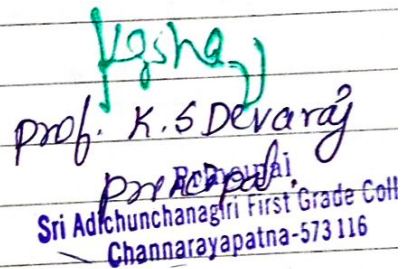 Prof. K.S Devaraj
Principal.
Principal
Sri Adichunchanagiri First Grade Coll
Channarayapatna-573116